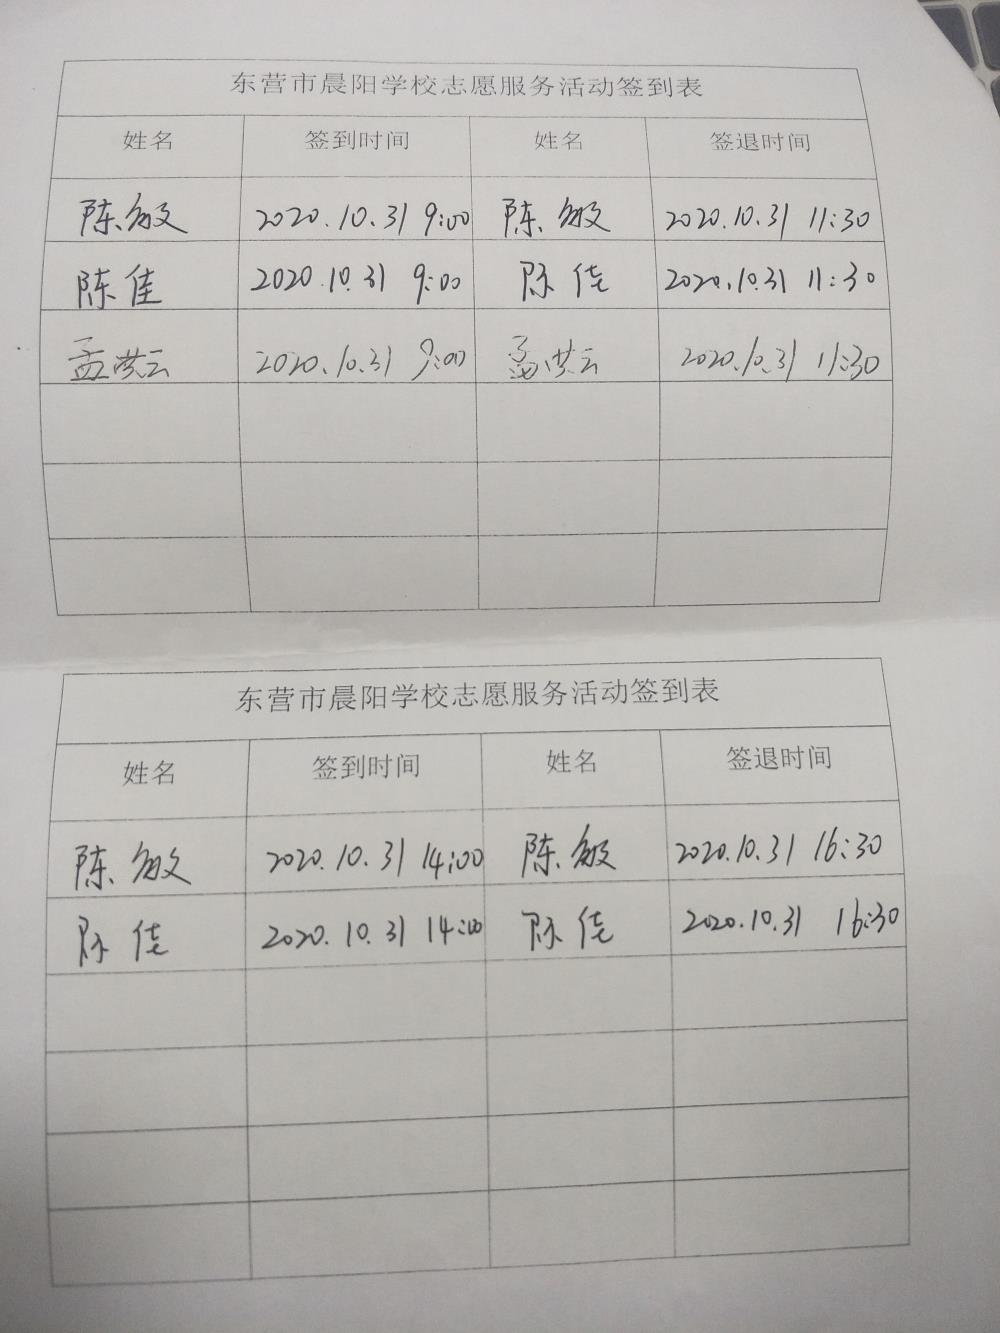 东营市晨阳学校志愿服务活动签到表
姓名 签到时间 姓名 签退时间
陈敏 2020.10.31 9:00 陈敏 2020.10.31 11:30
陈佳 2020.10.31 9:00 陈佳 2020.10.31 11:30
孟洪云 2020.10.31 9:00 孟洪云 2020.10.31 11:30
东营市晨阳学校志愿服务活动签到表
姓名 签到时间 姓名 签退时间
陈敏 2020.10.31 14:00 陈敏 2020.10.31 16:30
陈佳 2020.10.31 14:00 陈佳 2020.10.31 16:30